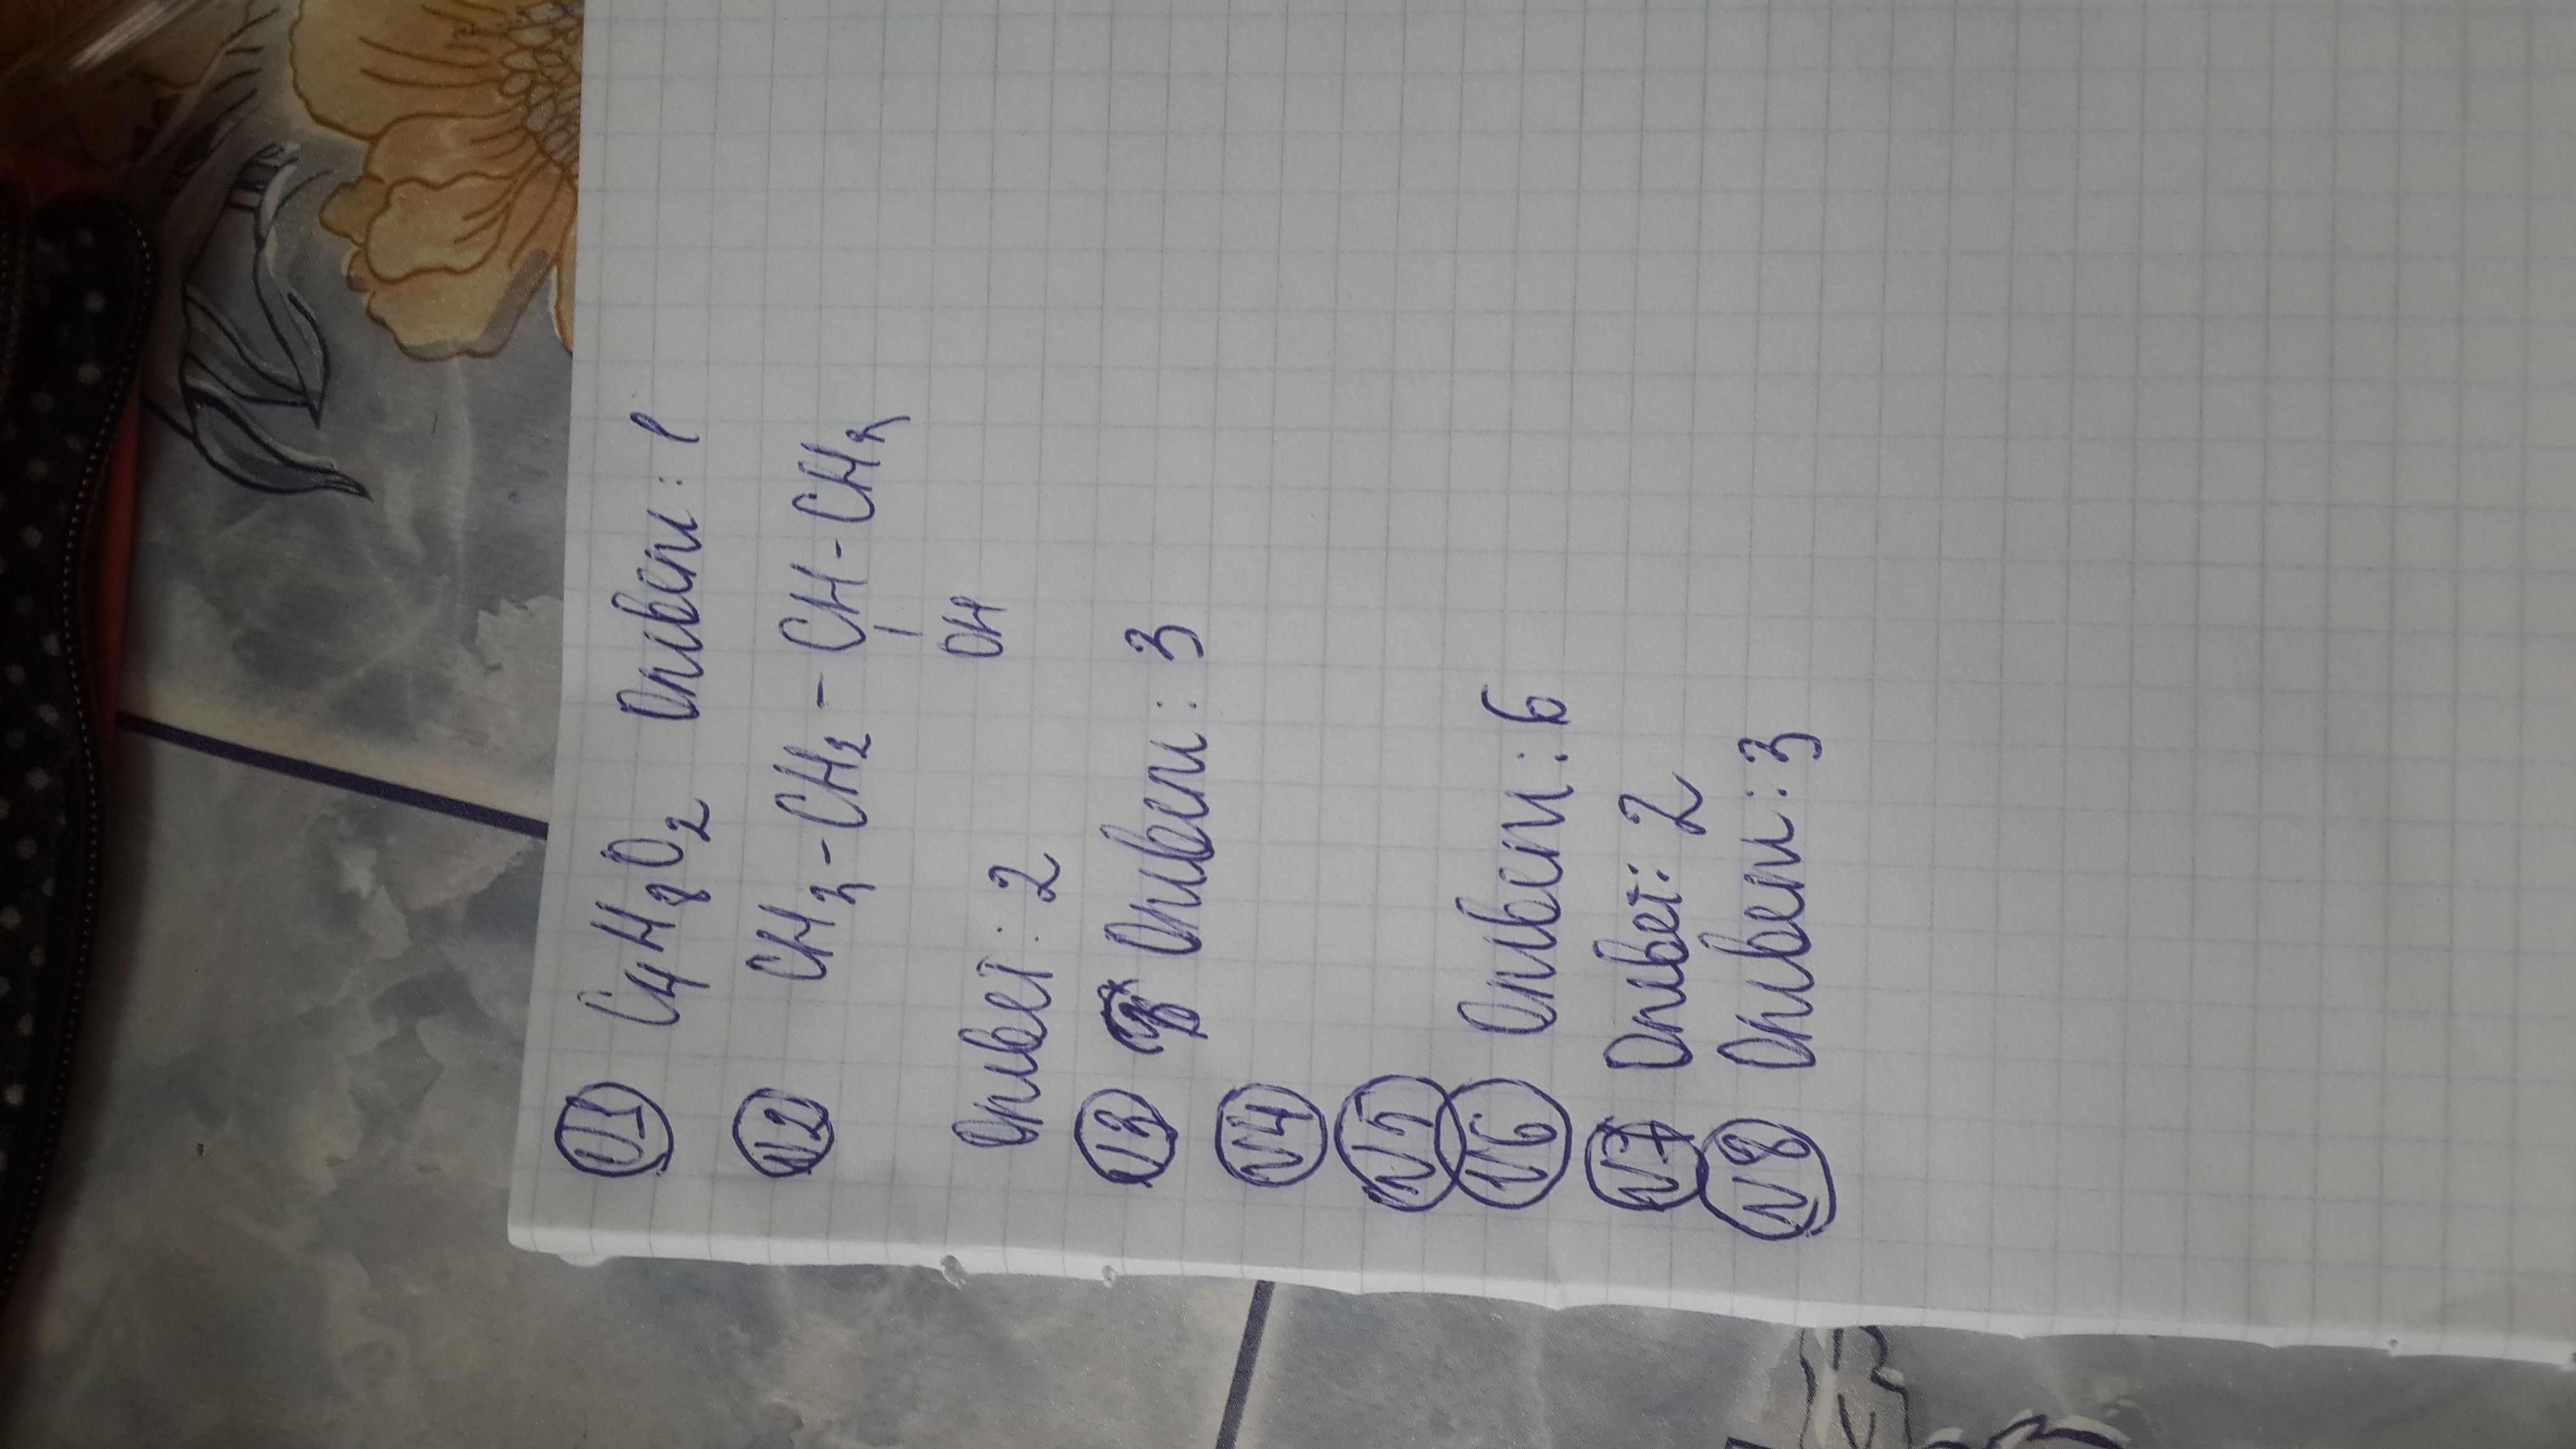 N1 C₄H₈O₂ Ответ: 1
N2 CH₃-CH₂-CH-CH₃
|
OH
Ответ: 2
N3 Ответ: 3
N4
N5
N6 Ответ: 6
N7 Ответ: 2
N8 Ответ: 3